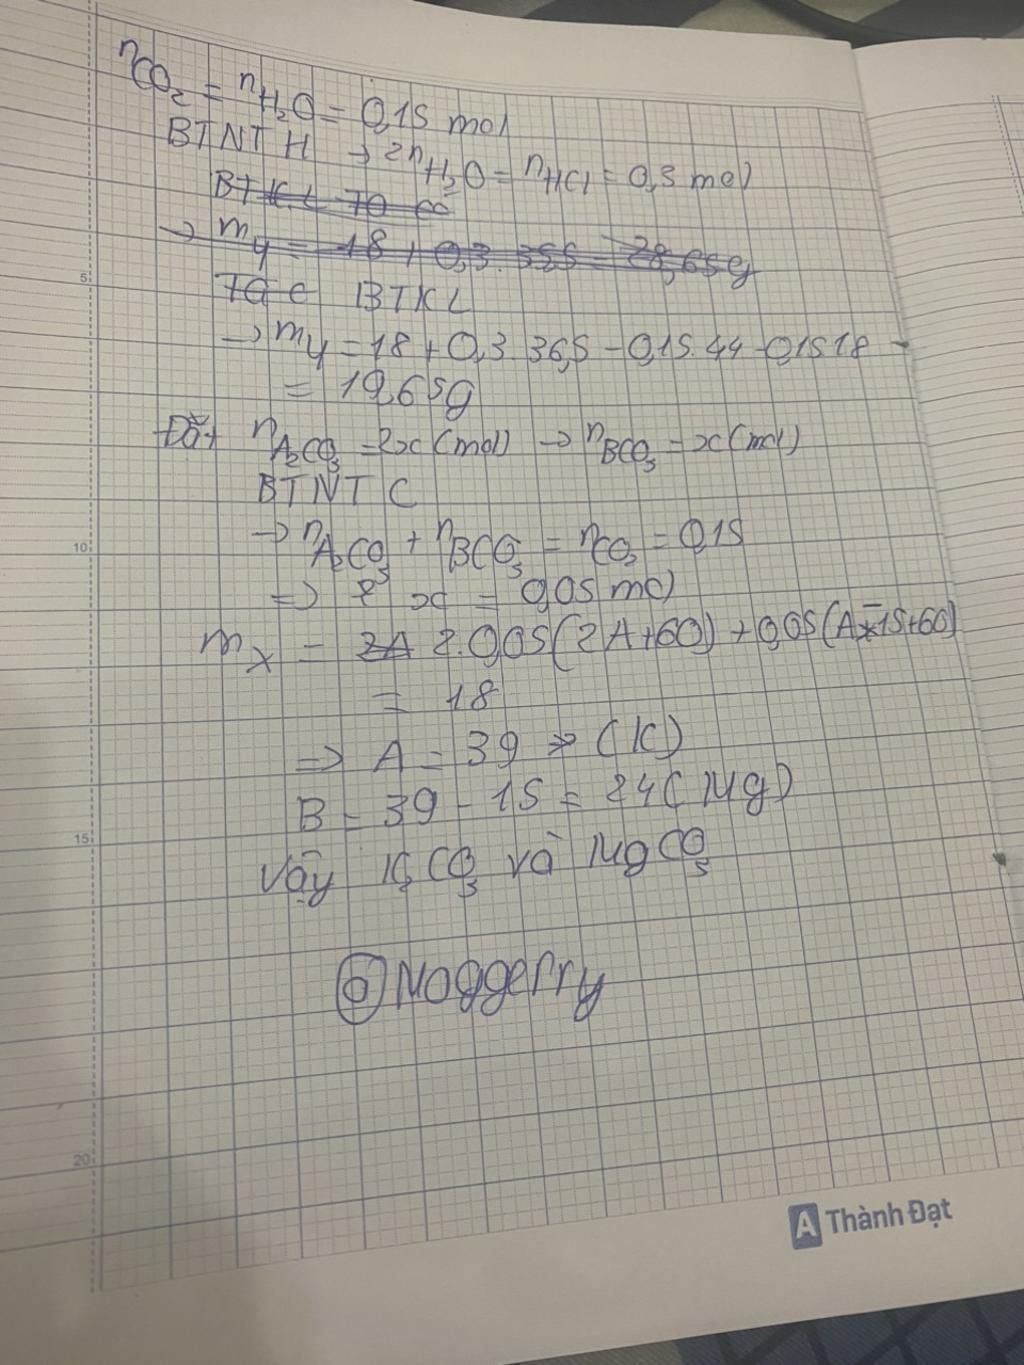 nCO2 = nH2O = 0,15 mol
BTNT H → 2nH2O = nHCl = 0,3 mol
→ my = 18 + 0,3. 35,5 = 28,65g
Ta c BTKL
→ my = 18 + 0,3 36,5 - 0,15.44 - 0,15 18
= 19,65g
Đặt nA2CO3 = 2x (mol) → nBCO3 = x (mol)
BTNT C
→ nA2CO3 + nBCO3 = nCO2 = 0,15
=> x = 0,05 mol
mx = 2A 2.0,05(2A+60) + 0,05(A-15+60)
= 18
=> A = 39 (K)
B = 39 - 15 = 24 (Mg)
Vậy K2CO3 và MgCO3
Noggerry
5
10
15
20
A Thành Đạt